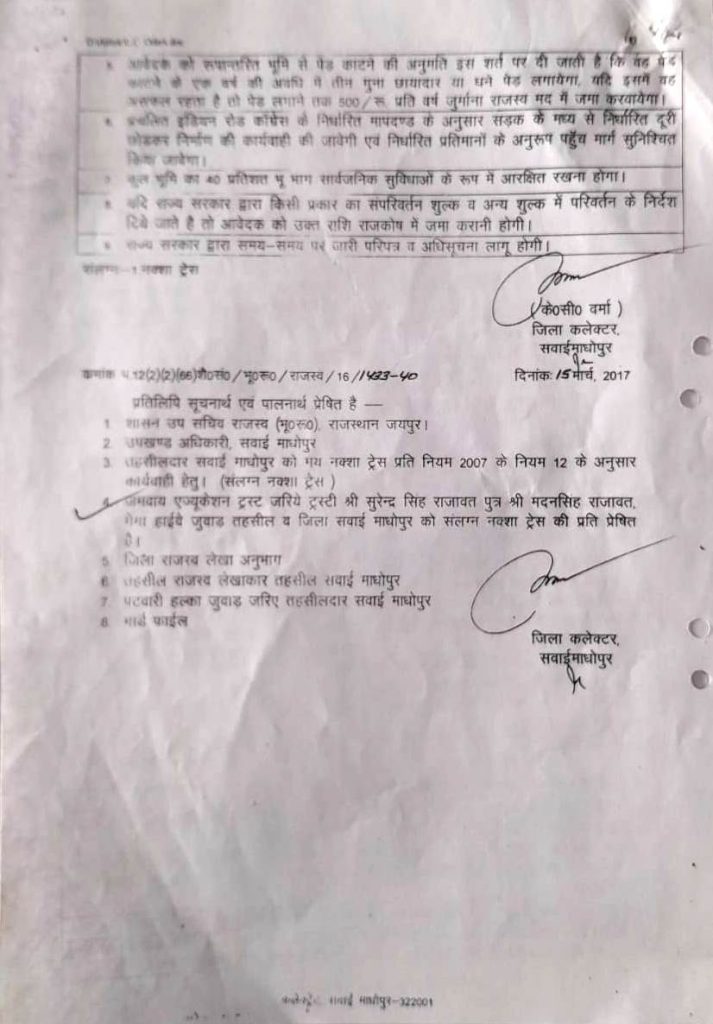 5. आवेदक को रूपान्तरित भूमि से पेड काटने की अनुमति इस शर्त पर दी जाती है कि वह पेड
काटने के एक वर्ष की अवधि में तीन गुना छायादार या घने पेड लगायेगा, यदि इसमें वह
असफल रहता है तो पेड लगाने तक 500/रू. प्रति वर्ष जुर्माना राजस्व मद में जमा करवायेगा।
6. प्रचलित इंडियन रोड कांग्रेस के निर्धारित मापदण्ड के अनुसार सड़क के मध्य से निर्धारित दूरी
छोडकर निर्माण की कार्यवाही की जावेगी एवं निर्धारित प्रतिमानों के अनुरूप पहुँच मार्ग सुनिश्चित
किया जावेगा।
7. कुल भूमि का 40 प्रतिशत भू भाग सार्वजनिक सुविधाओं के रूप में आरक्षित रखना होगा।
8. यदि राज्य सरकार द्वारा किसी प्रकार का संपरिवर्तन शुल्क व अन्य शुल्क में परिवर्तन के निर्देश
दिये जाते है तो आवेदक को उक्त राशि राजकोष में जमा करानी होगी।
9. राज्य सरकार द्वारा समय-समय पर जारी परिपत्र व अधिसूचना लागू होगी।
संलग्न-1 नक्शा ट्रेस
(के0सी0 वर्मा )
जिला कलेक्टर,
सवाईमाधोपुर
क्रमांक प.12(2)(2)(66)शै0सं0/भू0रू0/राजस्व/16/1433-40 दिनांक: 15 मार्च, 2017
प्रतिलिपि सूचनार्थ एवं पालनार्थ प्रेषित है —
1. शासन उप सचिव राजस्व (भू0रू0), राजस्थान जयपुर।
2. उपखण्ड अधिकारी, सवाई माधोपुर
3. तहसीलदार सवाई माधोपुर को मय नक्शा ट्रेस प्रति नियम 2007 के नियम 12 के अनुसार
कार्यवाही हेतु। (संलग्न नक्शा ट्रेस )
4. जमवाय एज्यूकेशन ट्रस्ट जरिये ट्रस्टी श्री सुरेन्द्र सिंह राजावत पुत्र श्री मदनसिंह राजावत,
मेगा हाईवे जुवाड तहसील व जिला सवाई माधोपुर को संलग्न नक्शा ट्रेस की प्रति प्रेषित
है।
5 जिला राजस्व लेखा अनुभाग
6. तहसील राजस्व लेखाकार तहसील सवाई माधोपुर
7. पटवारी हल्का जुवाड जरिए तहसीलदार सवाई माधोपुर
8. गार्ड फाईल
जिला कलेक्टर,
सवाईमाधोपुर
कलेक्ट्रेट, सवाई माधोपुर-322001